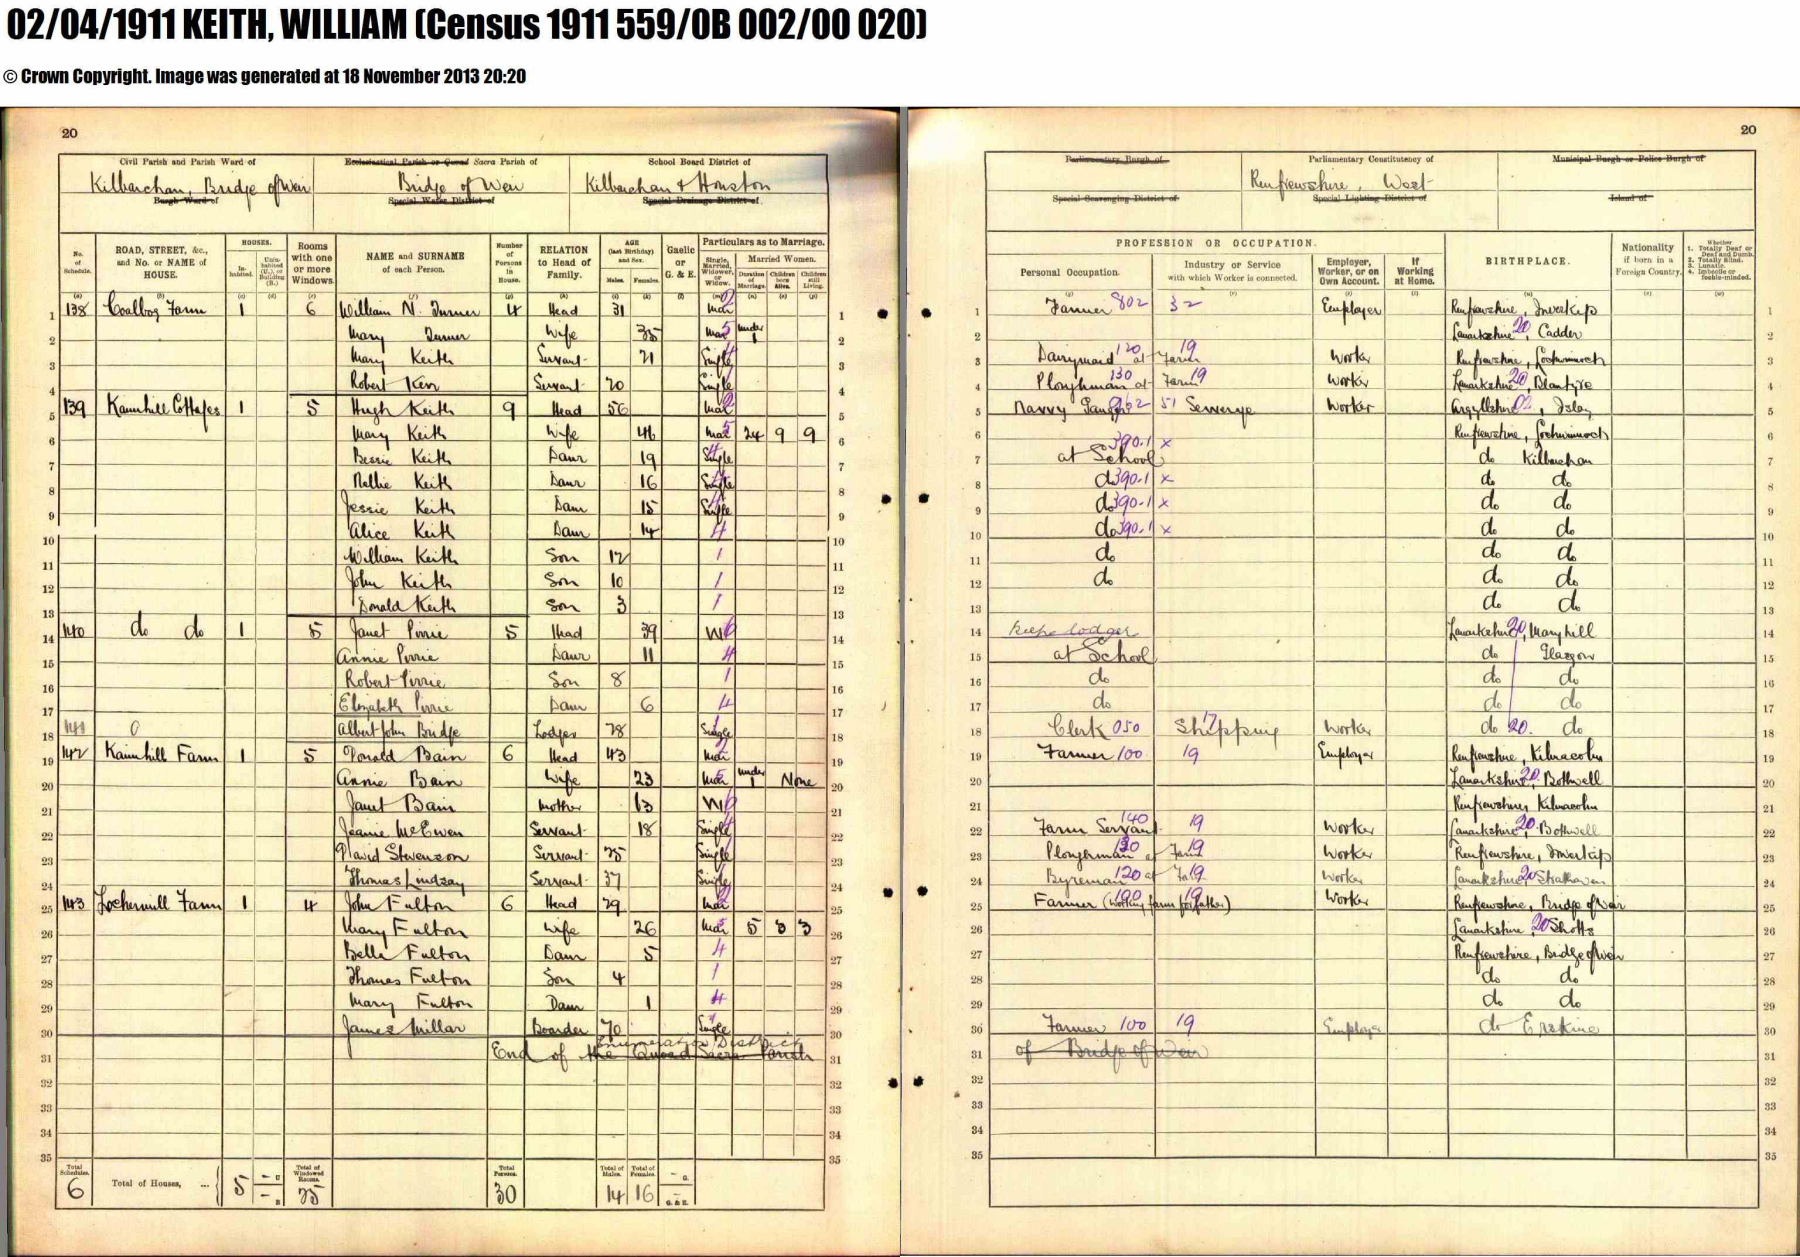 02/04/1911 KEITH, WILLIAM (Census 1911 559/0B 002/00 020)
© Crown Copyright. Image was generated at 18 November 2013 20:20
20
Civil Parish and Parish Ward of Ecclesiastical Parish or Quoad Sacra Parish of School Board District of
Kilbarchan, Bridge of Weir Bridge of Weir Kilbarchan & Houston
Burgh Ward of Special Water District of Special Drainage District of
No. of Schedule. ROAD, STREET, &c., and No. or NAME of HOUSE. HOUSES. Inhabited. Uninhabited (U.), or Building (B.) Rooms with one or more Windows. NAME and SURNAME of each Person. Number of Persons in House. RELATION to Head of Family. AGE (last Birthday) and Sex. Males. Females. Gaelic or G. & E. Particulars as to Marriage. Single, Married, Widower, or Widow. Married Women. Duration of Marriage. Children born Alive. Children still Living.
1 138 Coalbog Farm 1 6 William N. Turner 4 Head 31 Mar 2
2 Mary Turner Wife 35 Mar 5 under 1
3 Mary Keith Servant 21 Single 4
4 Robert Kerr Servant 20 Single 1
5 139 Kamhill Cottages 1 5 Hugh Keith 9 Head 56 Mar 2
6 Mary Keith Wife 46 Mar 5 24 9 9
7 Bessie Keith Daur 19 Single 4
8 Nellie Keith Daur 16 Single 4
9 Jessie Keith Daur 15 Single 4
10 Alice Keith Daur 14 4
11 William Keith Son 12 1
12 John Keith Son 10 1
13 Donald Keith Son 3 1
14 140 do do 1 5 Janet Pirrie 5 Head 39 W 6
15 Annie Pirrie Daur 11 4
16 Robert Pirrie Son 8 1
17 Elizabeth Pirrie Daur 6 4
18 141 0 Albert John Bridge Lodger 28 Single 1
19 142 Kamhill Farm 1 5 Donald Bain 6 Head 43 Mar 2
20 Annie Bain Wife 23 Mar 5 under 1 None
21 Janet Bain Mother 63 W 6
22 Jeanie McEwen Servant 18 Single 4
23 David Stevenson Servant 25 Single 1
24 Thomas Lindsay Servant 37 Single 1
25 143 Lochermill Farm 1 4 John Fulton 6 Head 29 Mar 2
26 Mary Fulton Wife 26 Mar 5 5 3 3
27 Bella Fulton Daur 5 4
28 Thomas Fulton Son 4 1
29 Mary Fulton Daur 1 4
30 James Millar Boarder 70 Single 1
31 End of the Enumeration District Quoad Sacra Parish
32
33
34
35
Total Schedules. 6 Total of Houses, ... 5 — U — B Total of Windowed Rooms. 25 Total Persons. 30 Total of Males. 14 Total of Females. 16 — G. — G. & E.
20
Parliamentary Burgh of Parliamentary Constituency of Municipal Burgh or Police Burgh of
Renfrewshire, West
Special Scavenging District of Special Lighting District of Island of
PROFESSION OR OCCUPATION. Personal Occupation. Industry or Service with which Worker is connected. Employer, Worker, or on Own Account. If Working at Home. BIRTHPLACE. Nationality if born in a Foreign Country. Whether 1. Totally Deaf or Deaf and Dumb. 2. Totally Blind. 3. Lunatic. 4. Imbecile or feeble-minded.
1 Farmer 802 32 Employer Renfrewshire, Inverkip
2 Lanarkshire 20, Cadder
3 Dairymaid 120 at Farm 19 Worker Renfrewshire, Lochwinnoch
4 Ploughman 130 at Farm 19 Worker Lanarkshire 20, Blantyre
5 Navvy Ganger 51 Sewerage Worker Argyllshire 02, Islay
6 Renfrewshire, Lochwinnoch
7 at School 390.1 x do Kilbarchan
8 do 390.1 x do do
9 do 390.1 x do do
10 do 390.1 x do do
11 do do do
12 do do do
13 do do
14 Keeps lodger Lanarkshire 20, Maryhill
15 at School do Glasgow
16 do do do
17 do do do
18 Clerk 050 Shipping 17 Worker do 20. do
19 Farmer 100 19 Employer Renfrewshire, Kilmacolm
20 Lanarkshire 20. Bothwell
21 Renfrewshire, Kilmacolm
22 Farm Servant 140 19 Worker Lanarkshire 20. Bothwell
23 Ploughman 130 at Farm 19 Worker Renfrewshire, Inverkip
24 Byreman 120 at 19 Worker Lanarkshire 20 Strathaven
25 Farmer (working farm for father) 100 19 Worker Renfrewshire, Bridge of Weir
26 Lanarkshire, 20 Shotts
27 Renfrewshire, Bridge of Weir
28 do do
29 do do
30 Farmer 100 19 Employer do Erskine
31 of Bridge of Weir
32
33
34
35